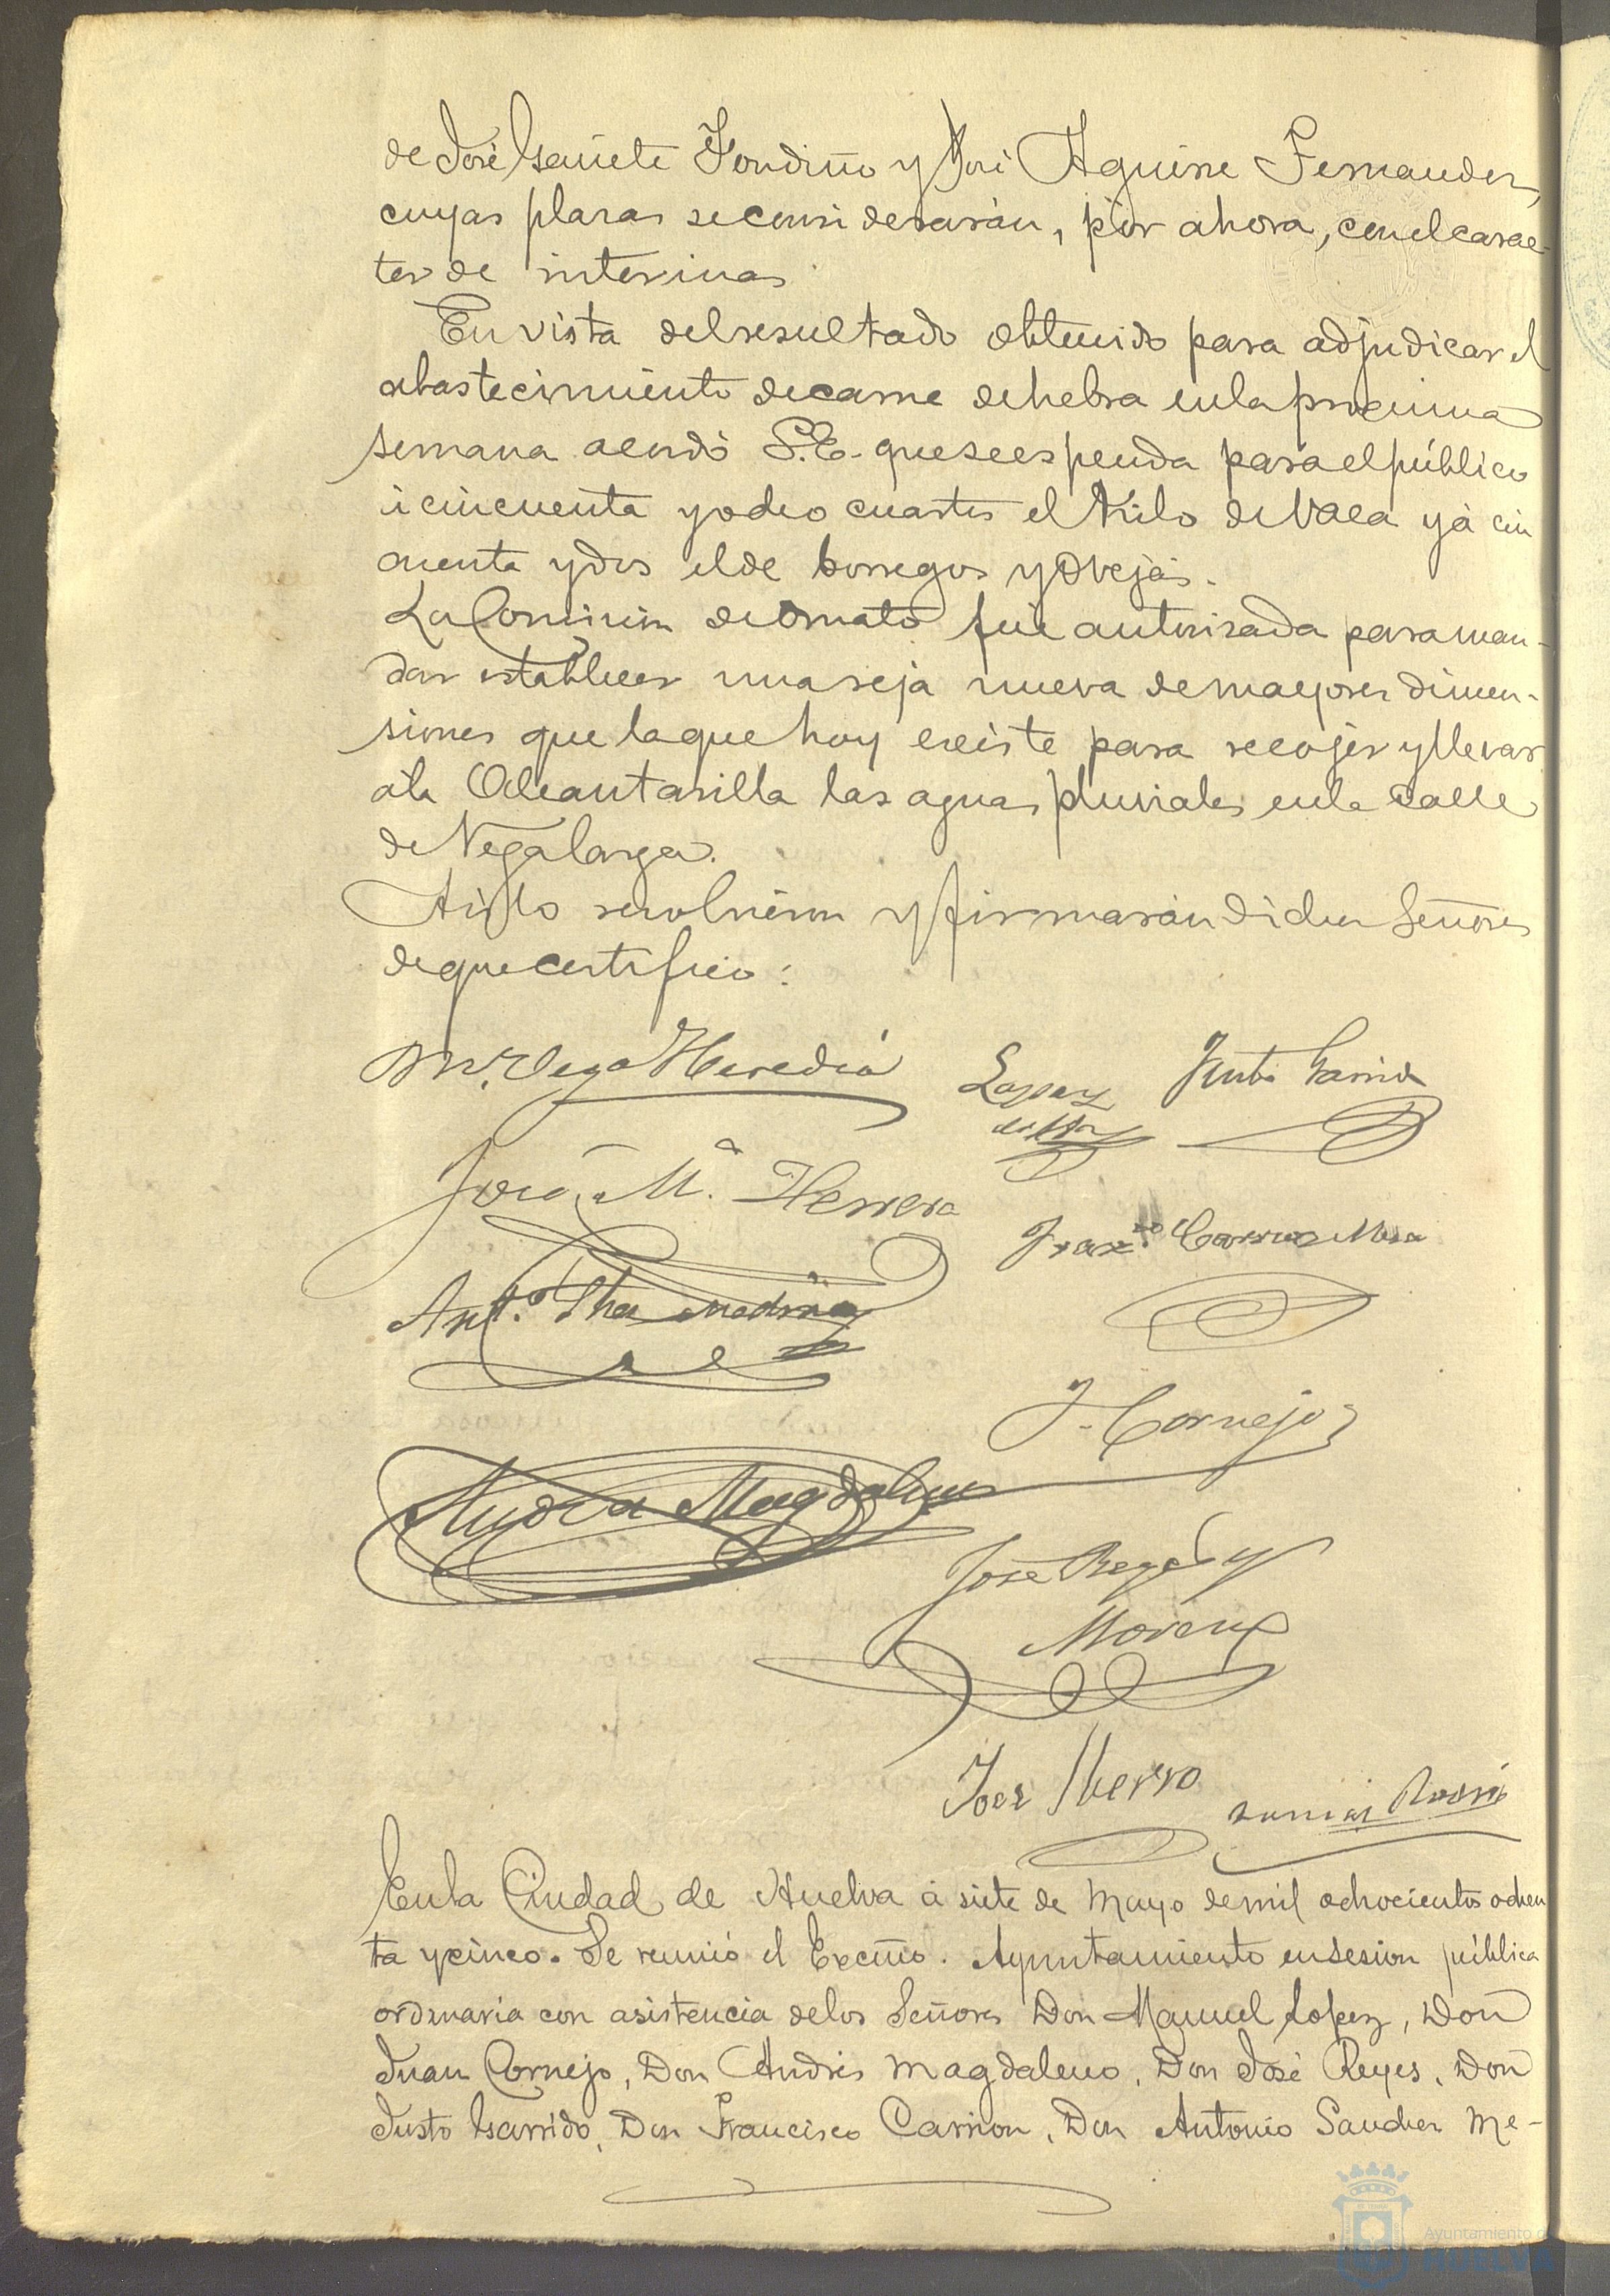 de José Gañete Tondiño y José Aguirre Fernandez,
cuyas plazas se considerarán, por ahora, con el carac-
ter de interinas.
En vista del resultado obtenido para adjudicar el
abastecimiento de carne de hebra en la proxima
semana acordó S.E. que se espenda para el público
á cincuenta y ocho cuartos el Kilo de Vaca y á cin
cuenta y dos el de borregos y Ovejas.
La Comision de Ornato fué autorizada para man-
dar establecer una reja nueva de mayores dimen-
siones que la que hoy existe para recojer y llevar
á la Alcantarilla las aguas pluviales en la calle
de Vegalarga.
Asi lo resolvieron y firmarán dichos Señores
de que certifico:
M. Vega Heredia
Lopez
Justo Garrido
José M.ª Herrera
Franco. Carrion Mesa
Ant.º Shez Medina
J. Cornejo
Andres Magdaleno
José Reyes y
Moreno
José Sherro
En la Ciudad de Huelva á siete de Mayo de mil ochocientos ochen
ta y cinco. Se reunió el Excmo. Ayuntamiento en sesion pública
ordinaria con asistencia de los Señores Don Manuel Lopez, Don
Juan Cornejo, Don Andrés Magdaleno, Don José Reyes, Don
Justo Garrido, Don Francisco Carrion, Don Antonio Sanchez Me-
Ayuntamiento de
HUELVA